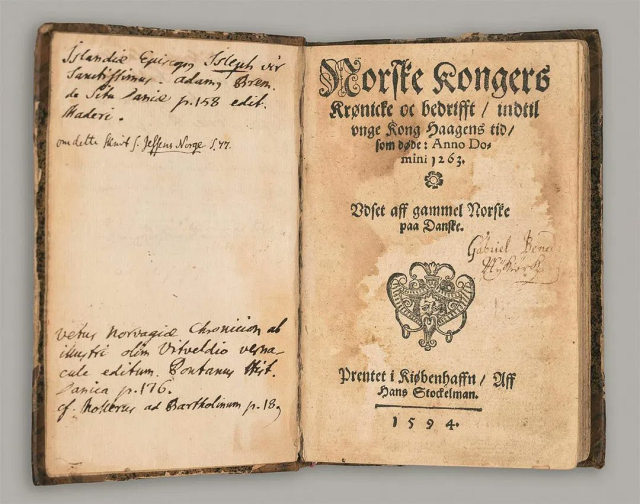 Islandiæ Episcop Isleph vir
Sanctissimus. Adamg Brem.
de Situ Daniæ p. 158 edit.
Maderi.
om dette Skrift s. Jessens Norge S. 47.
vetus Norvagiæ Chronicion ab
illustri olim Vitveldio verna-
cule editum. Pontanus Hist.
Danica p. 176.
cf. Mollerus ad Bartholinum p. 18
Norske Kongers
Krønicke oc bedrifft / indtil
vnge Kong Haagens tid /
som døde: Anno Do-
mini 1263.
Vdset aff gammel Norske
paa Danske.
Gabriel
Prentet i Kiøbenhaffn / Aff
Hans Stockelman.
1594.